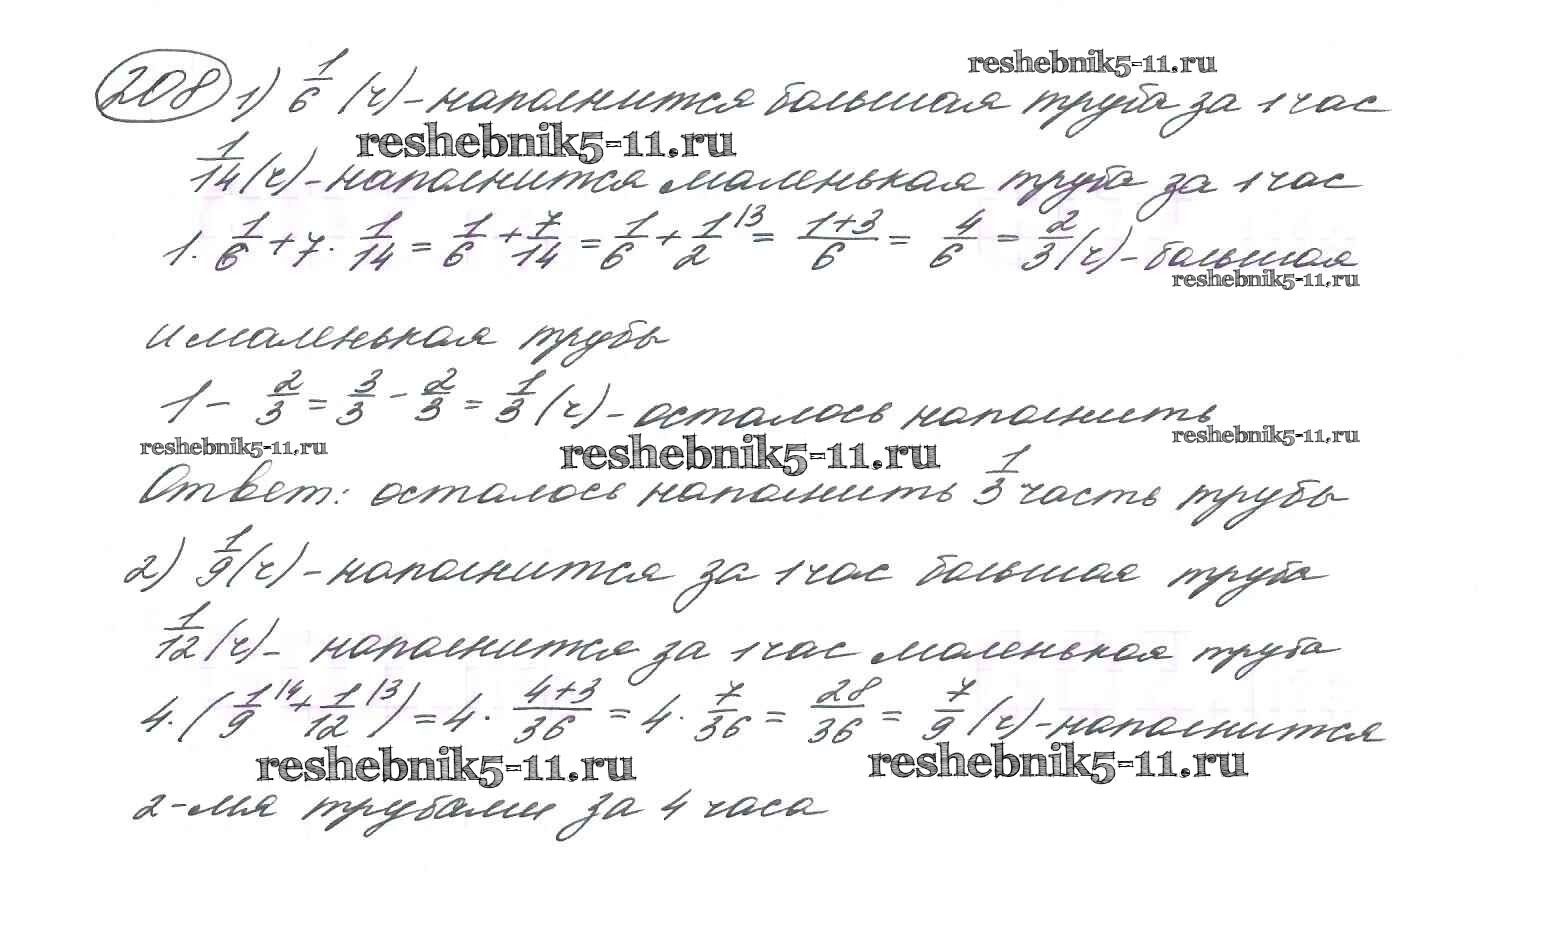 reshebnik5-11.ru
208 1) 1/6 (ч) - наполнится большая труба за 1 час
reshebnik5-11.ru
1/14 (ч) - наполнится маленькая труба за 1 час
1 · 1/6 + 7 · 1/14 = 1/6 + 7/14 = 1/6 + 1/2 |3 = (1+3)/6 = 4/6 = 2/3 (ч) - большая
reshebnik5-11.ru
и маленькая трубы
1 - 2/3 = 3/3 - 2/3 = 1/3 (ч) - осталось наполнить
reshebnik5-11.ru reshebnik5-11.ru reshebnik5-11.ru
Ответ: осталось наполнить 1/3 часть трубы
2) 1/9 (ч) - наполнится за 1 час большая труба
1/12 (ч) - наполнится за 1 час маленькая труба
4 · (1/9 |4 + 1/12 |3) = 4 · (4+3)/36 = 4 · 7/36 = 28/36 = 7/9 (ч) - наполнится
reshebnik5-11.ru reshebnik5-11.ru
2-мя трубами за 4 часа